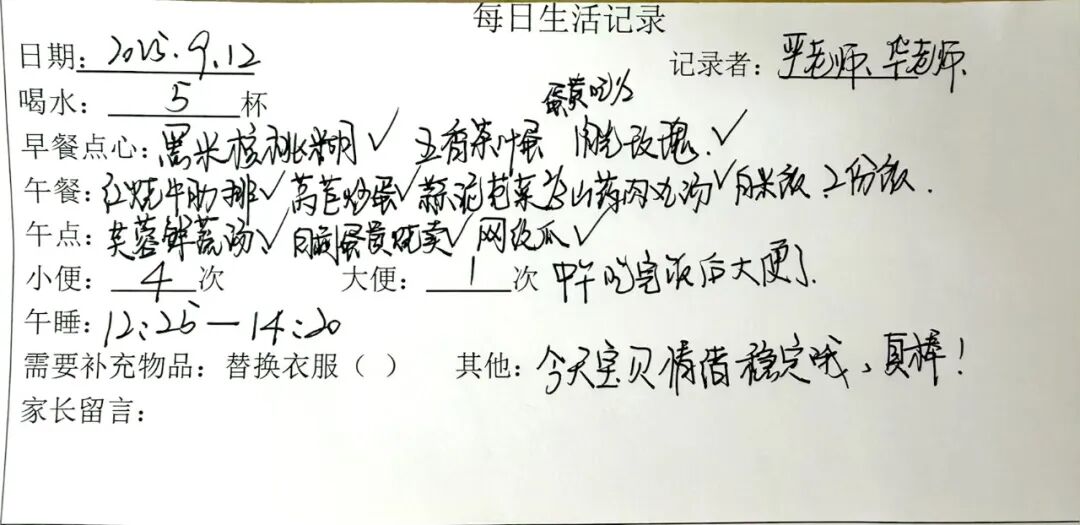 每日生活记录
日期：2025.9.12 记录者：严老师、华老师
蛋黄吃1/2
喝水：5杯
早餐点心：黑米核桃糊√ 五香茶叶蛋 玫瑰√
午餐：红烧牛肋排√ 莴苣炒蛋√ 蒜泥苋菜 山药肉丸汤√ 白米饭 2份饭.
午点：芙蓉鲜蔬汤√ 蛋黄烧卖√ 网纹瓜√
小便：4次 大便：1次 中午吃完饭后大便了.
午睡：12:25—14:20
需要补充物品：替换衣服（ ） 其他：今天宝贝情绪稳定哦，真棒！
家长留言：